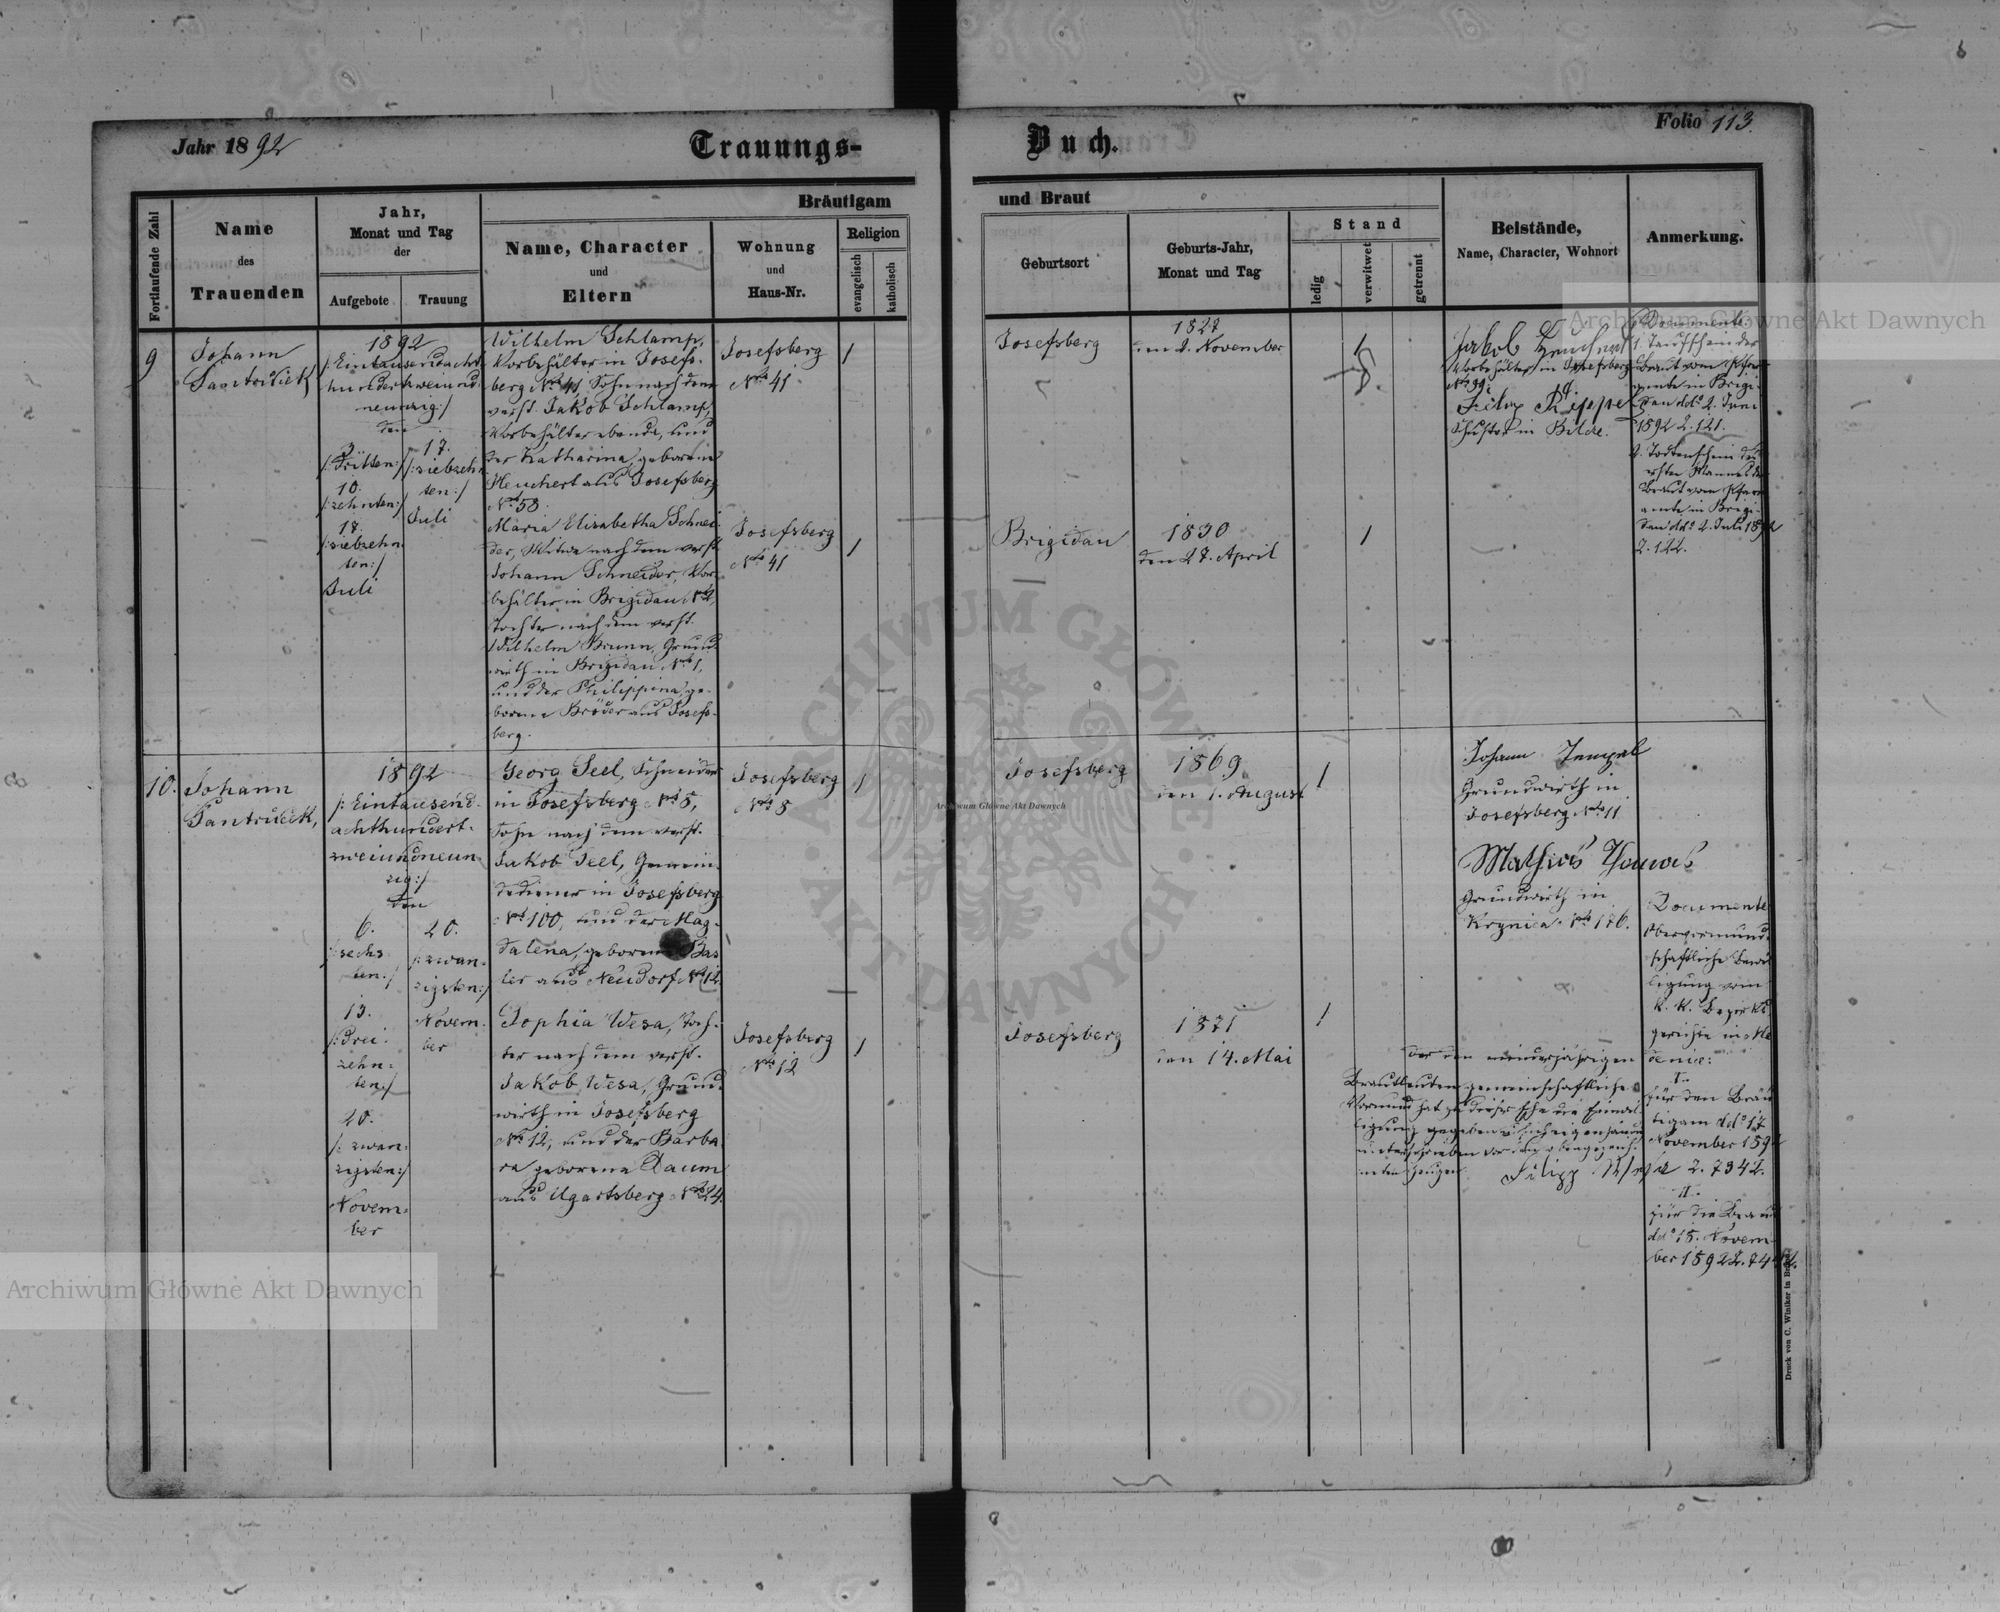 Jahr 1892
Trauungs-
Buch.
Folio 113.
Fortlaufende Zahl
Name
des
Trauenden
Jahr,
Monat und Tag
der
Aufgebote
Trauung
Bräutigam
Name, Character
und
Eltern
Wohnung
und
Haus-Nr.
Religion
evangelisch
katholisch
und Braut
Geburtsort
Geburts-Jahr,
Monat und Tag
Stand
ledig
verwitwet
getrennt
Beistände,
Name, Character, Wohnort
Anmerkung.
9
Johann
1892
/: Eintausendacht
hundertzweiund
neunzig :/
den
3.
/: Dritten :/
10.
/: zehnten :/
17.
/: siebzehn
ten :/
Juli
17.
/: siebzehn
ten :/
Juli
Wilhelm Schlamp,
Vorbehälter in Josefs-
berg No 41, Sohn nach dem
verst. Jakob Schlamp,
Vorbehälter ebenda, und
der Katharina, geborene
Heuchert aus Josefsberg
No 58.
Josefsberg
No 41
1
Josefsberg
1827
den 2. November
1
Jakob Heuchert
Vorbehälter in Josefsberg
No 99.
Filip Rippel
Schuster in Bilcze.
Documente
1. Taufschein der
Braut vom Pfarr
amte in Brigi-
dau ddo 2. Juni
1892 Z. 121.
2. Todtenschein des
ersten Mannes der
Braut vom Pfarr
amte in Brigi-
dau ddo 2. Juli 1892
Z. 122.
Maria Elisabetha Schnei-
der, Witwe nach dem verst.
Johann Schneider, Vor-
behälter in Brigidau No 2,
Tochter nach dem verst.
Wilhelm Brunn, Grund-
wirth in Brigidau No 1,
und der Philippina, ge-
borene Bröder aus Josefs-
berg.
Josefsberg
No 41
1
Brigidau
1830
den 27. April
1
10.
Johann
1892
/: Eintausend-
achthundert-
zweiundneun-
zig :/
den
6.
/: sechs
ten :/
13.
/: Drei-
zehn-
ten :/
20.
/: zwan-
zigsten :/
Novem-
ber
20.
/: zwan-
zigsten :/
Novem-
ber
Georg Seel, Schneider
in Josefsberg No 5,
Sohn nach dem verst.
Jakob Seel, Gemein-
dediener in Josefsberg
No 100, und der Mag-
dalena, geborene Bas
ler aus Neudorf No 12.
Josefsberg
No 5
1
Josefsberg
1869
den 1. August
1
Johann Tempel
Grundwirth in
Josefsberg No 11
Mathias
Grundwirth in
Krynica No 176.
Documente
Obervormund-
schaftliche Bewil
ligung vom
k. k. Bezirks
gerichte in Me
denice:
I.
für den Bräu
tigam ddo 17
November 1892
Z. 7342.
II.
für die Braut
ddo 15. Novem-
ber 1892 Z.
Sophia Wesa, Toch-
ter nach dem verst.
Jakob Wesa, Grund-
wirth in Josefsberg
No 12, und der Barba
ra geborene Daum
aus Ugartsberg No 24.
Josefsberg
No 12
1
Josefsberg
1871
den 14. Mai
1
Der den minderjährigen
Brautleuten gemeinschaftliche
Vormund hat zu dieser Ehe die Einwil-
ligung gegeben u. sich eigenhändig
unterschrieben vor den obengezeich-
neten Zeugen
Filipp
Druck von C. Winiker in Brünn.
Archiwum Główne Akt Dawnych
Archiwum Główne Akt Dawnych
Archiwum Główne Akt Dawnych
ARCHIWUM GŁÓWNE
AKT DAWNYCH